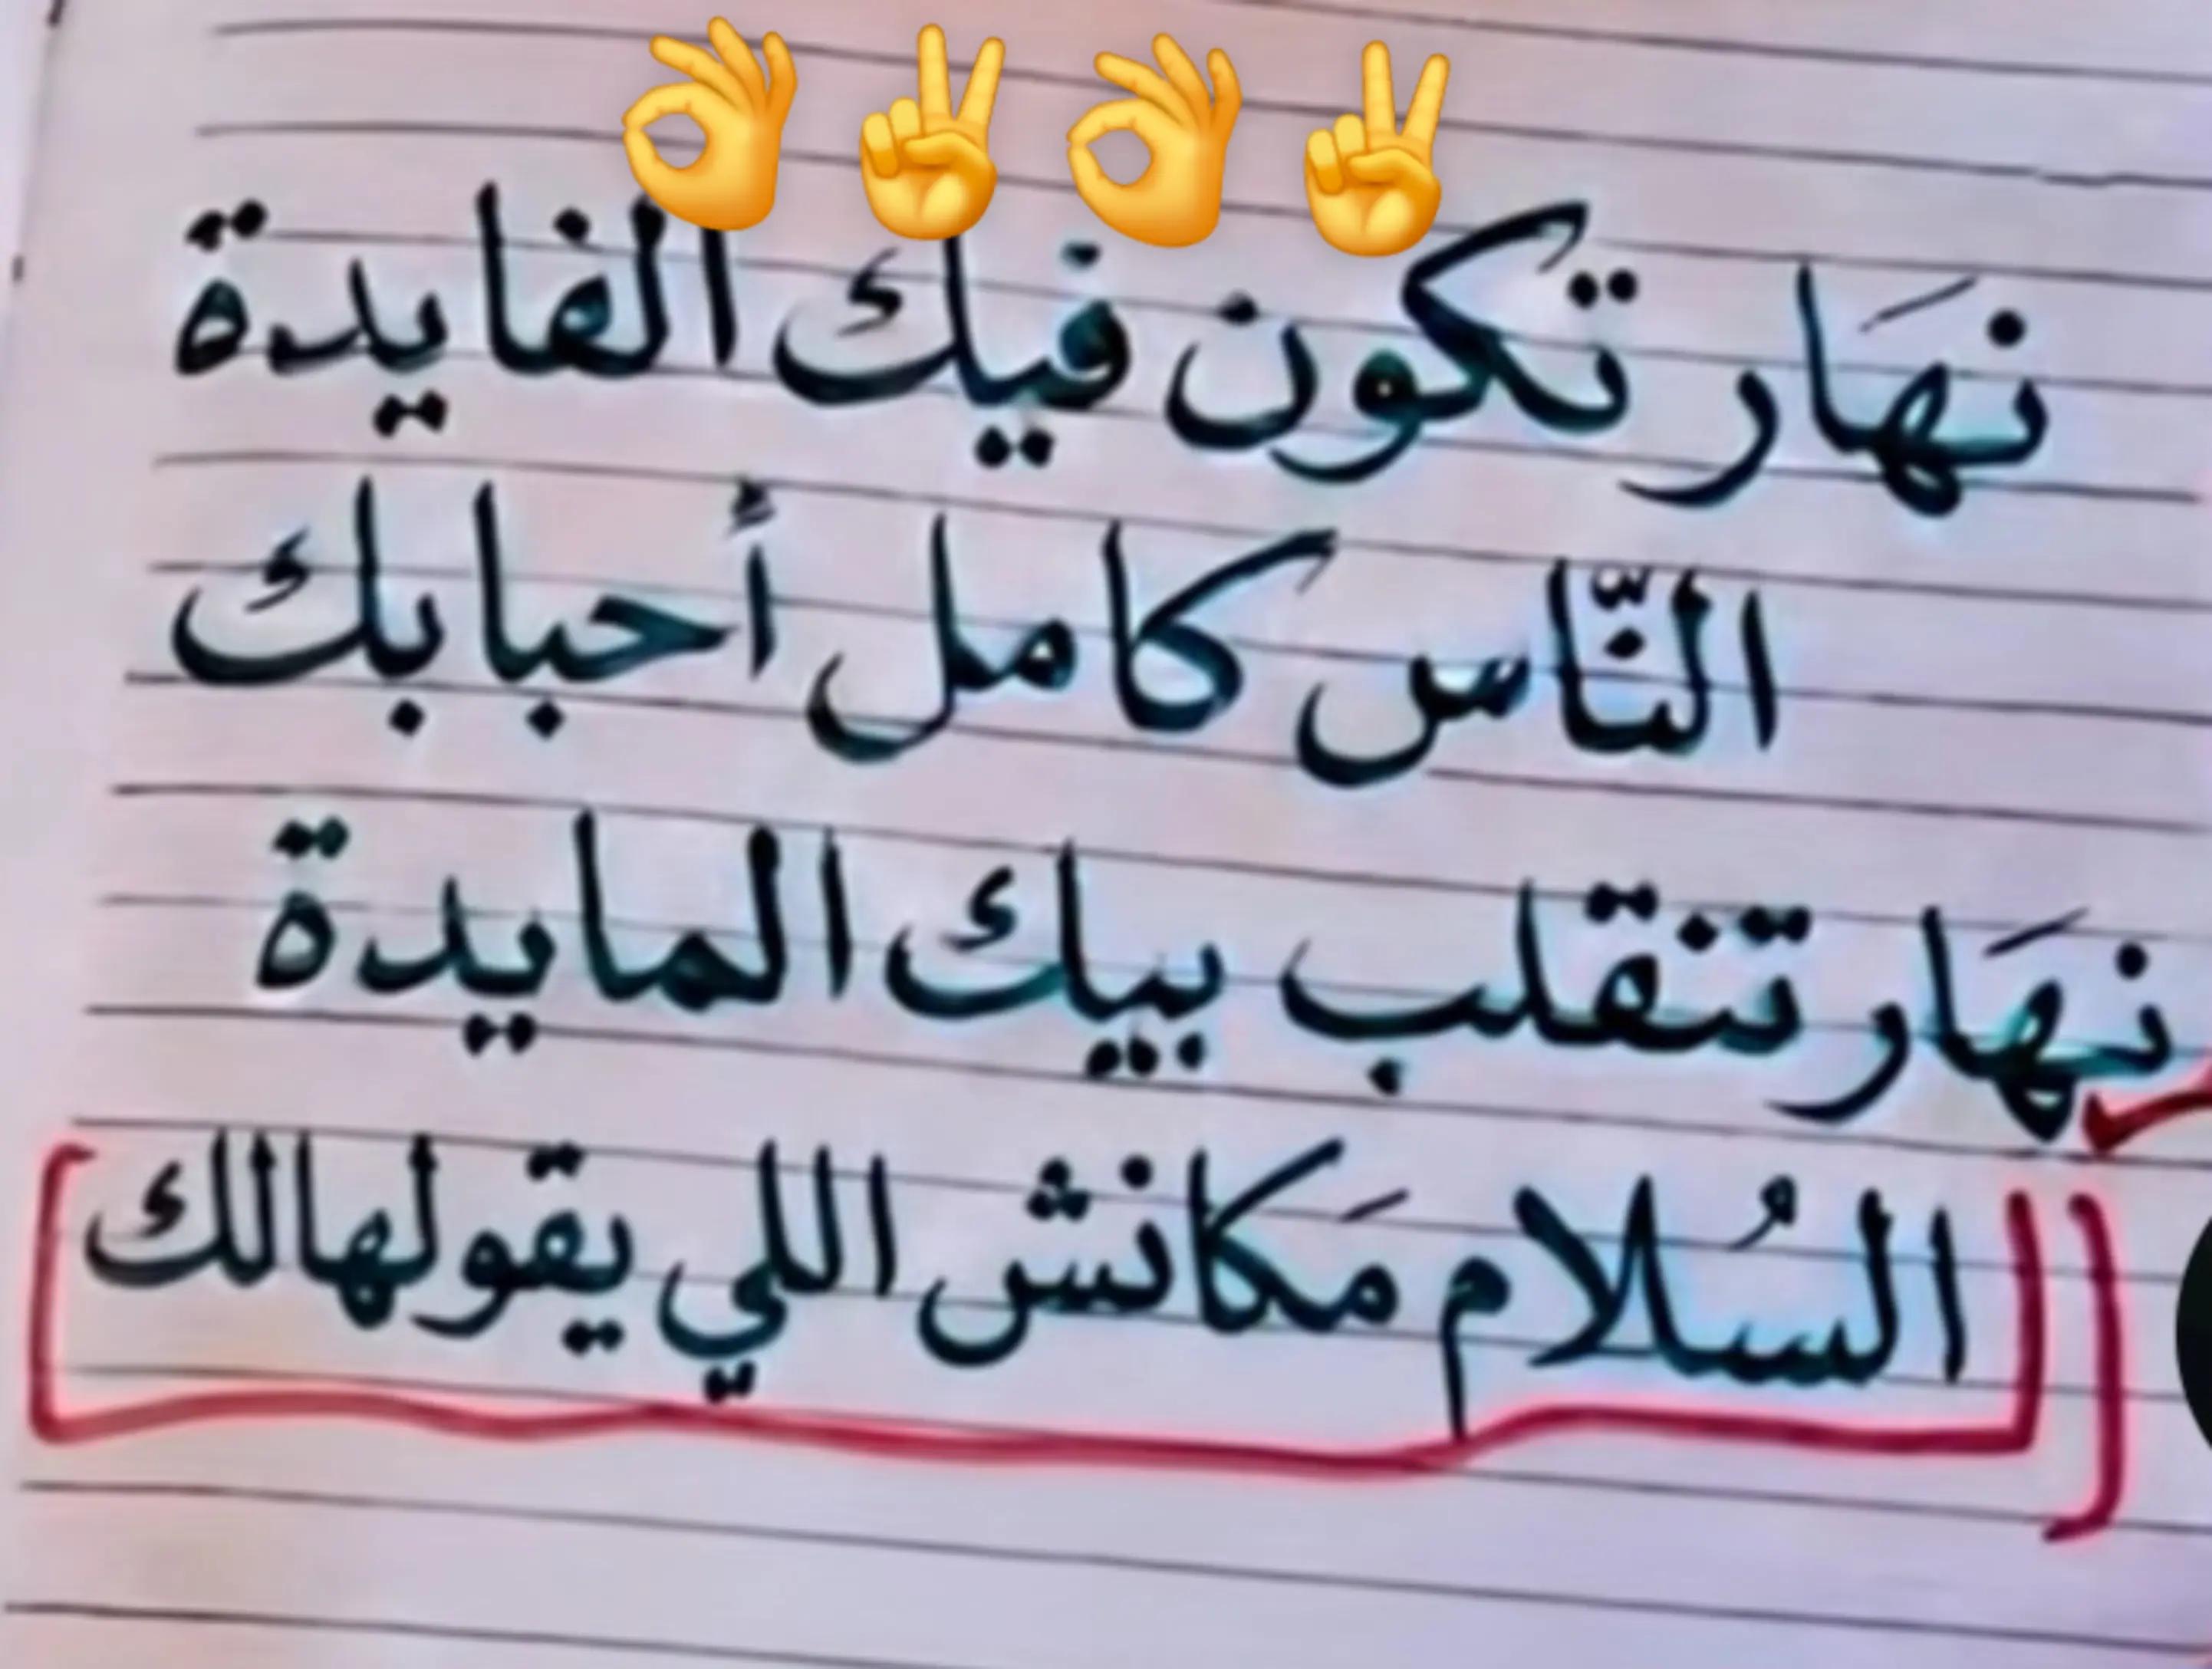 نهَار تكون فيك الفايدة
النّاس كامل أحبابك
نهَار تنقلب بيك المايدة
السُلام مَكانش اللي يقولهالك